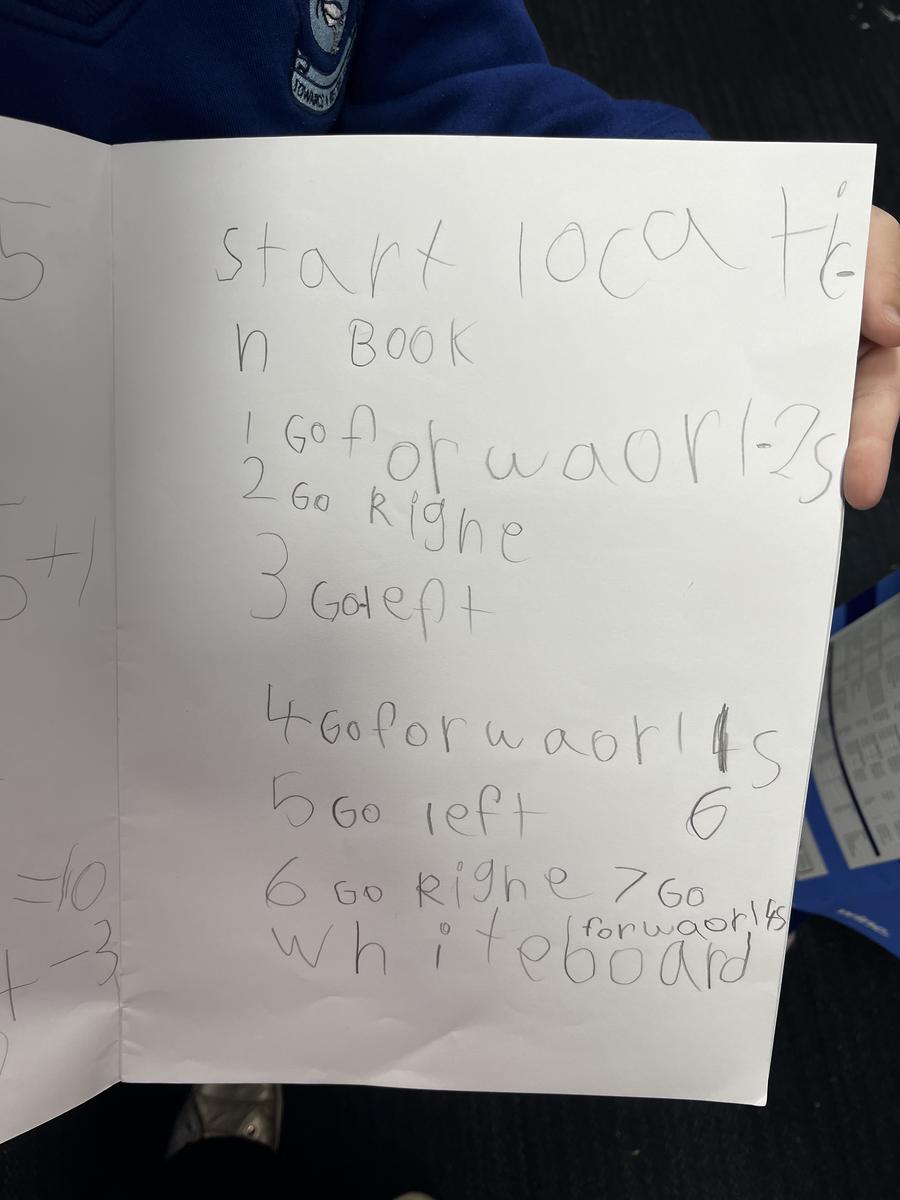 start locati
n BOOK
1 Go forwaorl-2s
2 Go Righe
3 Go left
4 Go forwaorl 1s
5 Go left 6
6 Go Righe 7 Go
forwaorl 4s
whiteboard
5
5+1
=10
-3